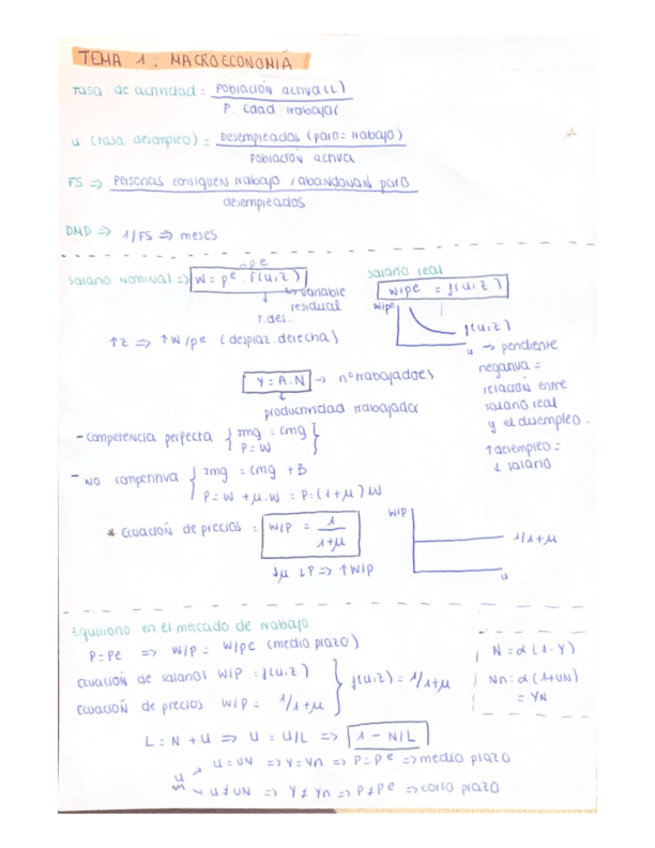 TEMA 1: MACROECONOMÍA
Tasa de actividad = Población activa (L)
P. Edad trabajar
u (tasa desempleo) = Desempleados (paro = trabajo)
Población activa
FS ⇒ Personas consiguen trabajo / abandonan paro
desempleados
DMD ⇒ 1/FS ⇒ meses
salario nominal ⇒ W = pe · F(u,z)
variable
residual
r.des.
↑z ⇒ ↑W/pe (desplaz. derecha)
salario real
W/pe = f(u,z)
W/pe
f(u,z)
u → pendiente
negativa =
relación entre
salario real
y el desempleo.
↑desempleo =
↓ salario
Y = A.N → nº trabajadores
productividad trabajador
- Competencia perfecta { Img = Cmg
P = W
- No competitiva { Img = Cmg + B
P = W + μ.W = P = (1+μ)W
* Ecuación de precios = W/P = 1
1+μ
↓μ ↓P ⇒ ↑W/P
W/P
1/1+μ
u
Equilibrio en el mercado de trabajo
P = Pe ⇒ W/P = W/Pe (medio plazo)
Ecuación de salarios W/P = f(u,z)
Ecuación de precios W/P = 1/1+μ } f(u,z) = 1/1+μ
N = α (1-Y)
Nn = α (1+UN)
= YN
L = N + U ⇒ U = U/L ⇒ 1 - N/L
u = UN ⇒ Y = Yn ⇒ P = Pe ⇒ medio plazo
u ≠ UN ⇒ Y ≠ Yn ⇒ P ≠ Pe ⇒ corto plazo